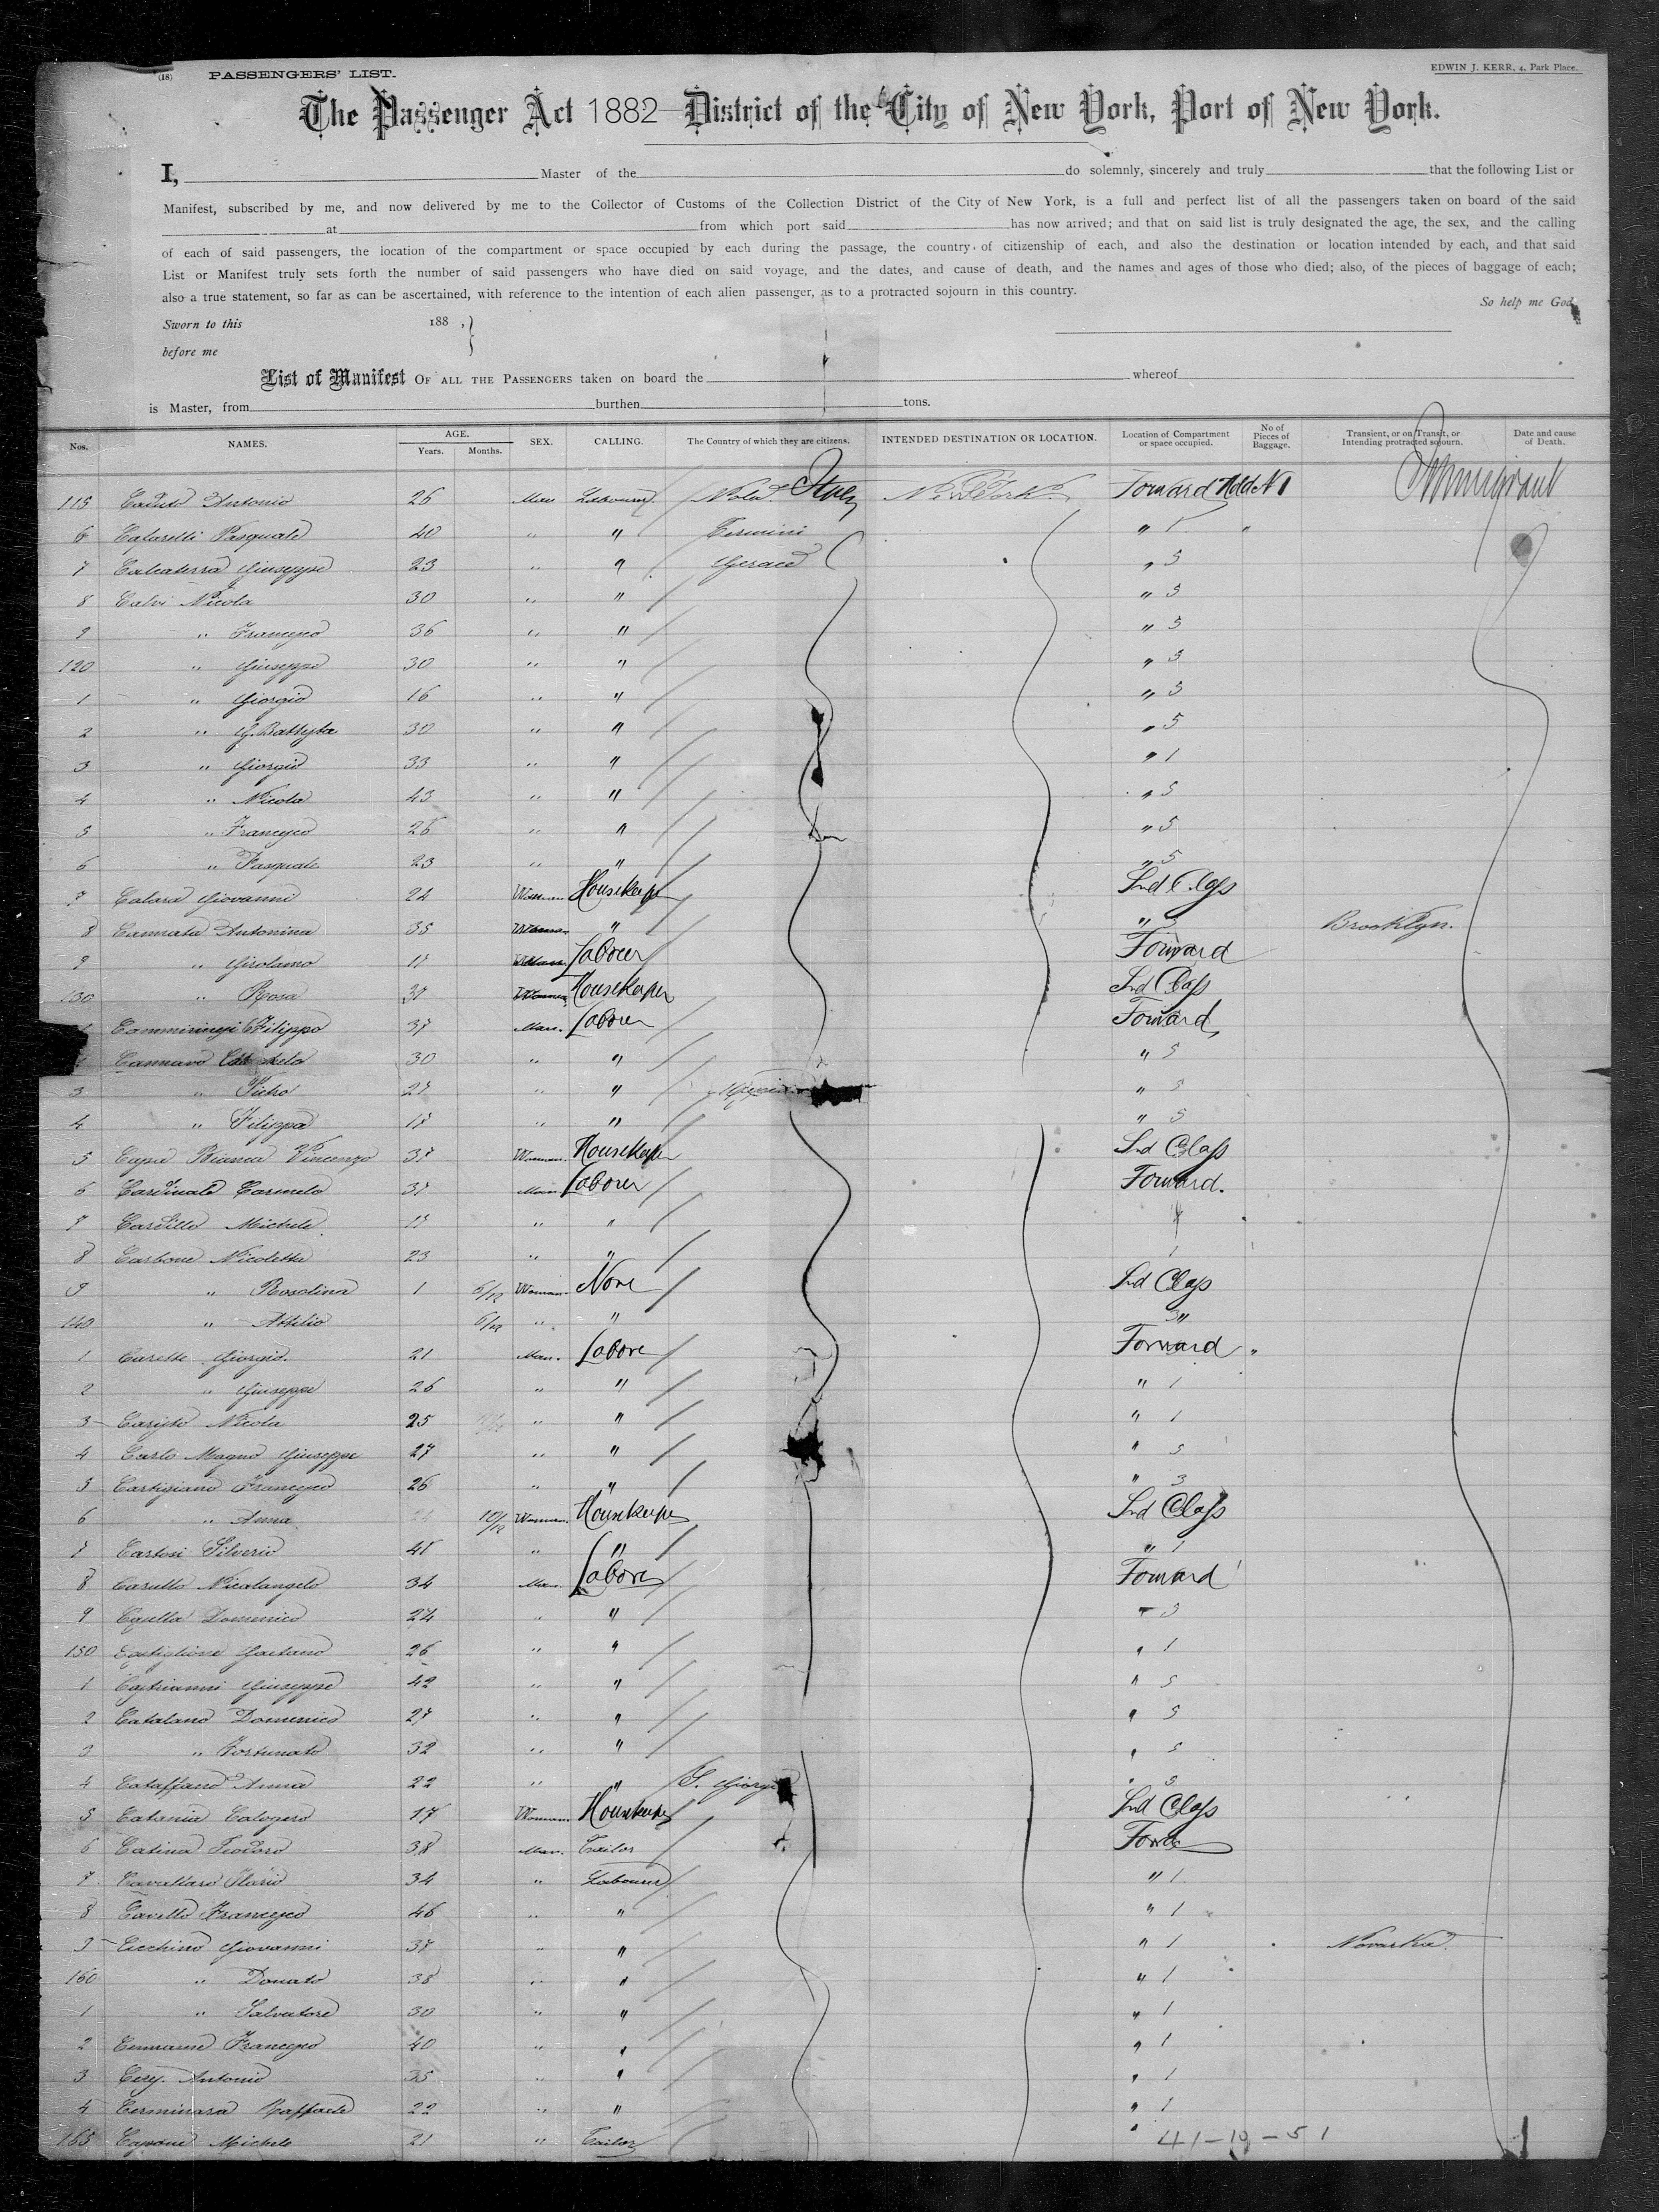 (18) PASSENGERS' LIST.
EDWIN J. KERR, 4, Park Place.
The Passenger Act 1882 District of the City of New York, Port of New York.
I, Master of the do solemnly, sincerely and truly that the following List or
Manifest, subscribed by me, and now delivered by me to the Collector of Customs of the Collection District of the City of New York, is a full and perfect list of all the passengers taken on board of the said
at from which port said has now arrived; and that on said list is truly designated the age, the sex, and the calling
of each of said passengers, the location of the compartment or space occupied by each during the passage, the country of citizenship of each, and also the destination or location intended by each, and that said
List or Manifest truly sets forth the number of said passengers who have died on said voyage, and the dates, and cause of death, and the names and ages of those who died; also, of the pieces of baggage of each;
also a true statement, so far as can be ascertained, with reference to the intention of each alien passenger, as to a protracted sojourn in this country.
So help me God
Sworn to this 188 ,}
before me
List of Manifest OF ALL THE PASSENGERS taken on board the whereof
is Master, from burthen tons.
Nos. NAMES. AGE. Years. Months. SEX. CALLING. The Country of which they are citizens. INTENDED DESTINATION OR LOCATION. Location of Compartment or space occupied. No of Pieces of Baggage. Transient, or on Transit, or Intending protracted sojourn. Date and cause of Death.
115 Caduto Antonio 26 Man Labourer Nola Italy New York Forward Hold N 1 Immigrant
6 Cafarelli Pasquale 40 " " Termini " 1 "
7 Calcaterra Giuseppe 23 " " Gerace " 3
8 Calvi Nicola 30 " " " 3
9 " Francesco 36 " " " 3
120 " Giuseppe 30 " " " 3
1 " Giorgio 16 " " " 3
2 " G. Battista 30 " " " 5
3 " Giorgio 33 " " " 1
4 " Nicola 43 " " " 5
5 " Francesco 26 " " " 5
6 " Pasquale 23 " " " 5
7 Calora Giovanni 24 Woman Housekeeper 2nd Class
8 Camrata Antonina 35 Woman " " Brooklyn.
9 " Girolamo 17 Laborer Forward
130 " Rosa 37 Woman Housekeeper 2nd Class
Filippo 37 Man. Laborer Forward
Cannavo 30 " " " 5
3 " Pietro 27 " " " 5
4 " Filippa 17 " " " 5
5 Bianca Vincenzo 37 Woman. Housekeeper 2nd Class
6 Cardinale Carmelo 37 Man Laborer Forward.
7 Cardillo Michele 17 " "
8 Carbone Nicoletta 23 " " 1
9 " Rosolina 1 6/12 Woman. None 2nd Class
140 " Attilio 6/12 " " 3 "
1 Giorgio. 21 Man. Labore Forward "
2 " Giuseppe 26 " " " 1
3 Caristo Nicola 25 " " " 1
4 Carlo Magno Giuseppe 27 " " " 5
5 Cartigiano Francesco 26 " " " 3
6 " Anna 10/12 Woman. Housekeeper 2nd Class
7 Cartosi Silverio 41 " " " 1
8 Carullo Nicolangelo 34 Man. Labore Forward
9 Casella Domenico 24 " " " 5
150 Castiglione Gaetano 26 " " " 1
1 Castrianni Giuseppe 42 " " " 5
2 Catalano Domenico 27 " " " 5
3 " Fortunato 32 " " " 5
4 Cataffano Anna 22 " " S. Giorgio " 5
5 Catania Calogero 17 Woman Housekeeper 2nd Class
6 Catina Teodoro 38 Man. Tailor Forwd
7 Cavallaro Ilario 34 " Labourer " 1
8 Cavello Francesco 46 " " " 1
9 Cicchino Giovanni 37 " " " 1
160 " Donato 38 " " " 1
1 " Salvatore 30 " " " 1
2 Francesco 40 " " " 1
3 Antonio 35 " " " 1
4 Cerminara Raffaele 22 " " " 1
165 Capone Michele 21 " Tailor "
41 – 10 – 51